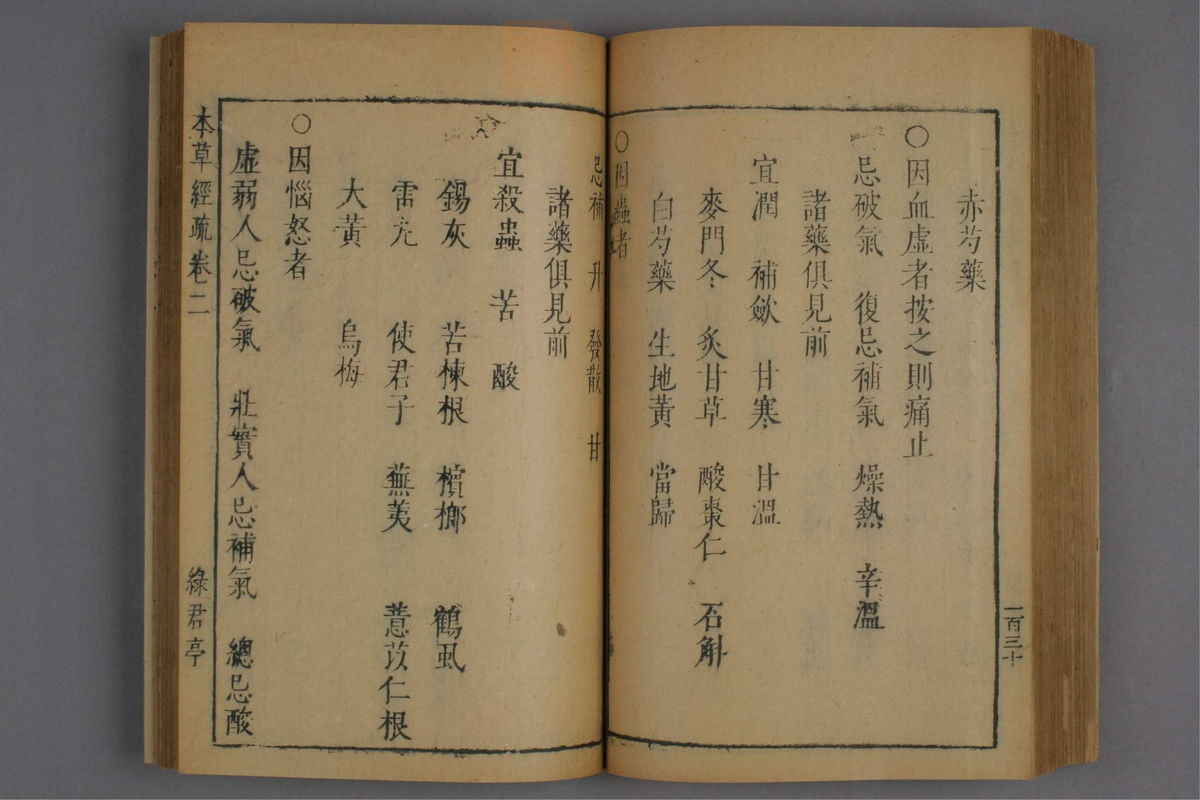 赤芍藥
○因血虛者按之則痛止
忌破氣 復忌補氣 燥熱 辛溫
諸藥俱見前
宜潤 補斂 甘寒 甘溫
麥門冬 炙甘草 酸棗仁 石斛
白芍藥 生地黃 當歸
○因蟲者
忌補 升 發散 甘
諸藥俱見前
宜殺蟲 苦 酸
錫灰 苦楝根 檳榔 鶴虱
雷丸 使君子 蕪荑 薏苡仁根
大黃 烏梅
○因惱怒者
虛弱人忌破氣 壯實人忌補氣 總忌酸
本草經疏 卷二 綠君亭
一百三十